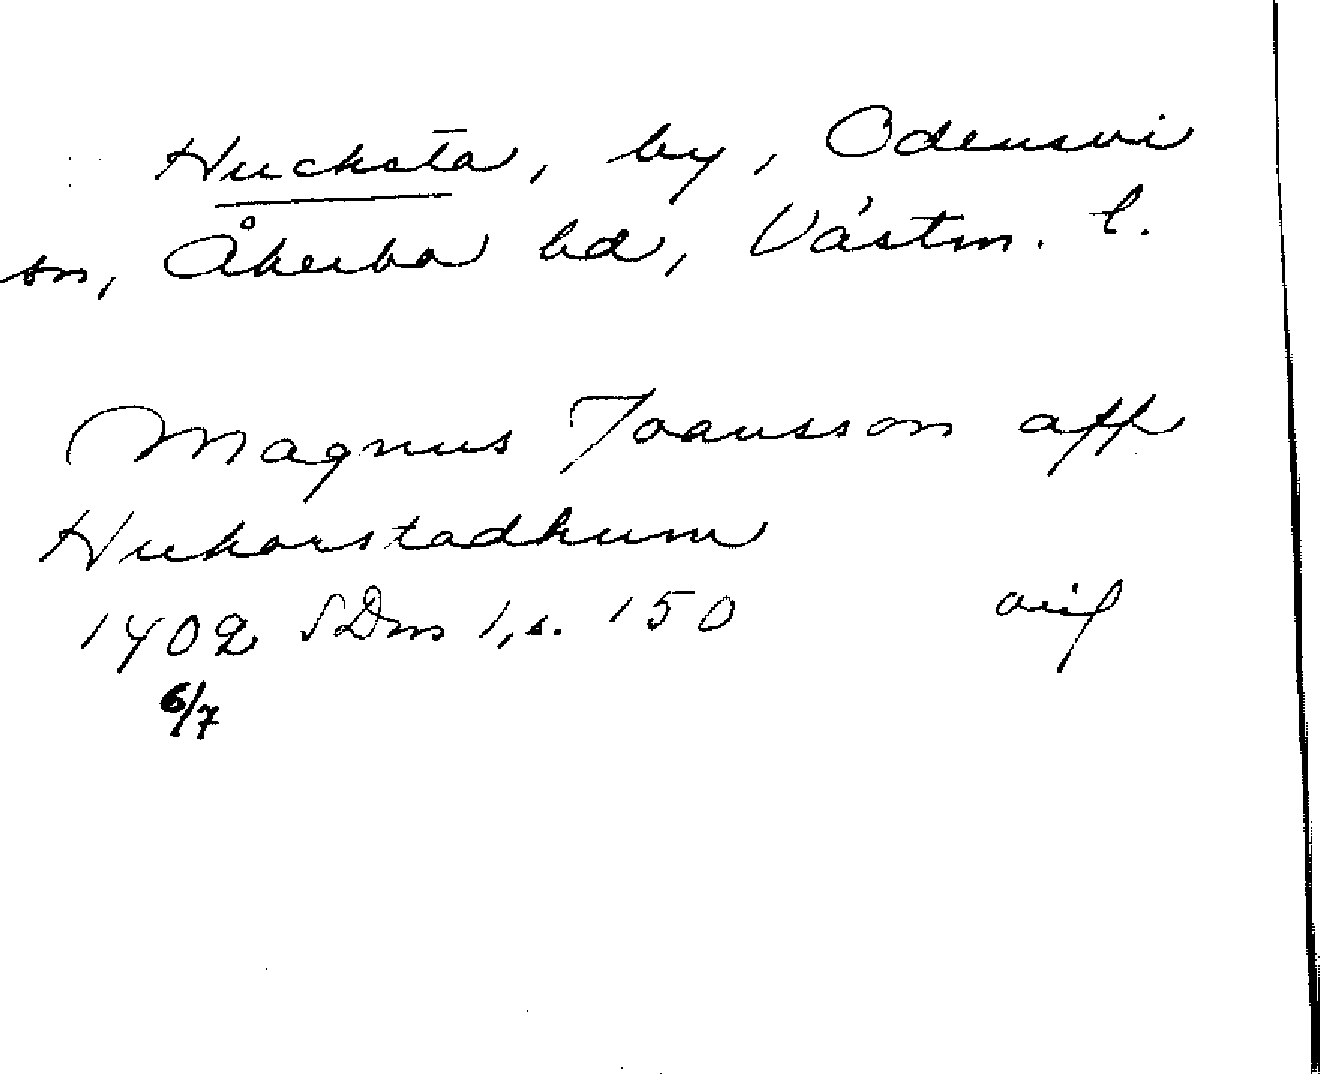 Hucksta, by, Odensvi
sn, Åkerbo hd, Västm. l.
Magnus Joansson aff
Hukarstadhum
1402 SDns 1, s. 150 orig
6/7